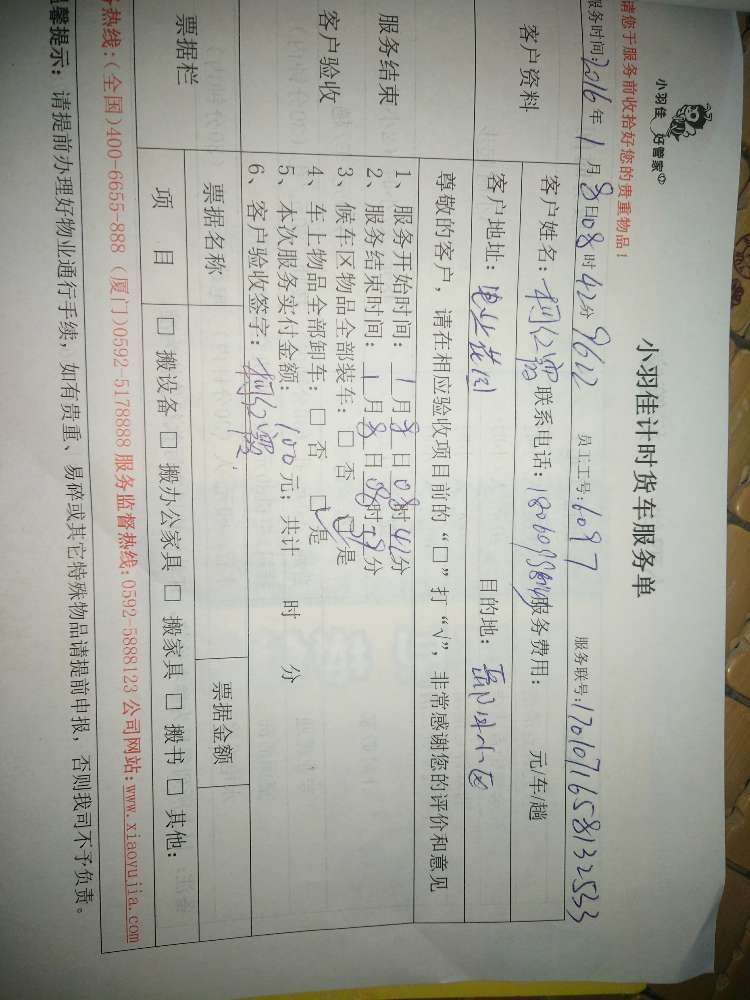 请您于服务前收拾好您的贵重物品！
小羽佳 好管家
小羽佳计时货车服务单
服务时间:2016年1月8日08时42分 9622 员工工号:6097 服务联号:1701071658132533
客户资料
客户姓名: 联系电话: 服务费用: 元/车/趟
客户地址: 电业花园 目的地: 小区
尊敬的客户，请在相应验收项目前的“□”打“√”，非常感谢您的评价和意见
服务结束
客户验收
1、服务开始时间: 1月8日08时42分
2、服务结束时间: 1月8日08时分
3、候车区物品全部装车: □ 否 ☑ 是
4、车上物品全部卸车: □ 否 ☑ 是
5、本次服务实付金额: 100元; 共计 时 分
6、客户验收签字:
票据栏
票据名称 票据金额
项 目 □ 搬设备 □ 搬办公家具 □ 搬家具 □ 搬书 □ 其他:
热线:(全国)400-6655-888 (厦门)0592-5178888 服务监督热线:0592-5888123 公司网站:www.xiaoyujia.com
温馨提示: 请提前办理好物业通行手续, 如有贵重、易碎或其它特殊物品请提前申报, 否则我司不予负责。